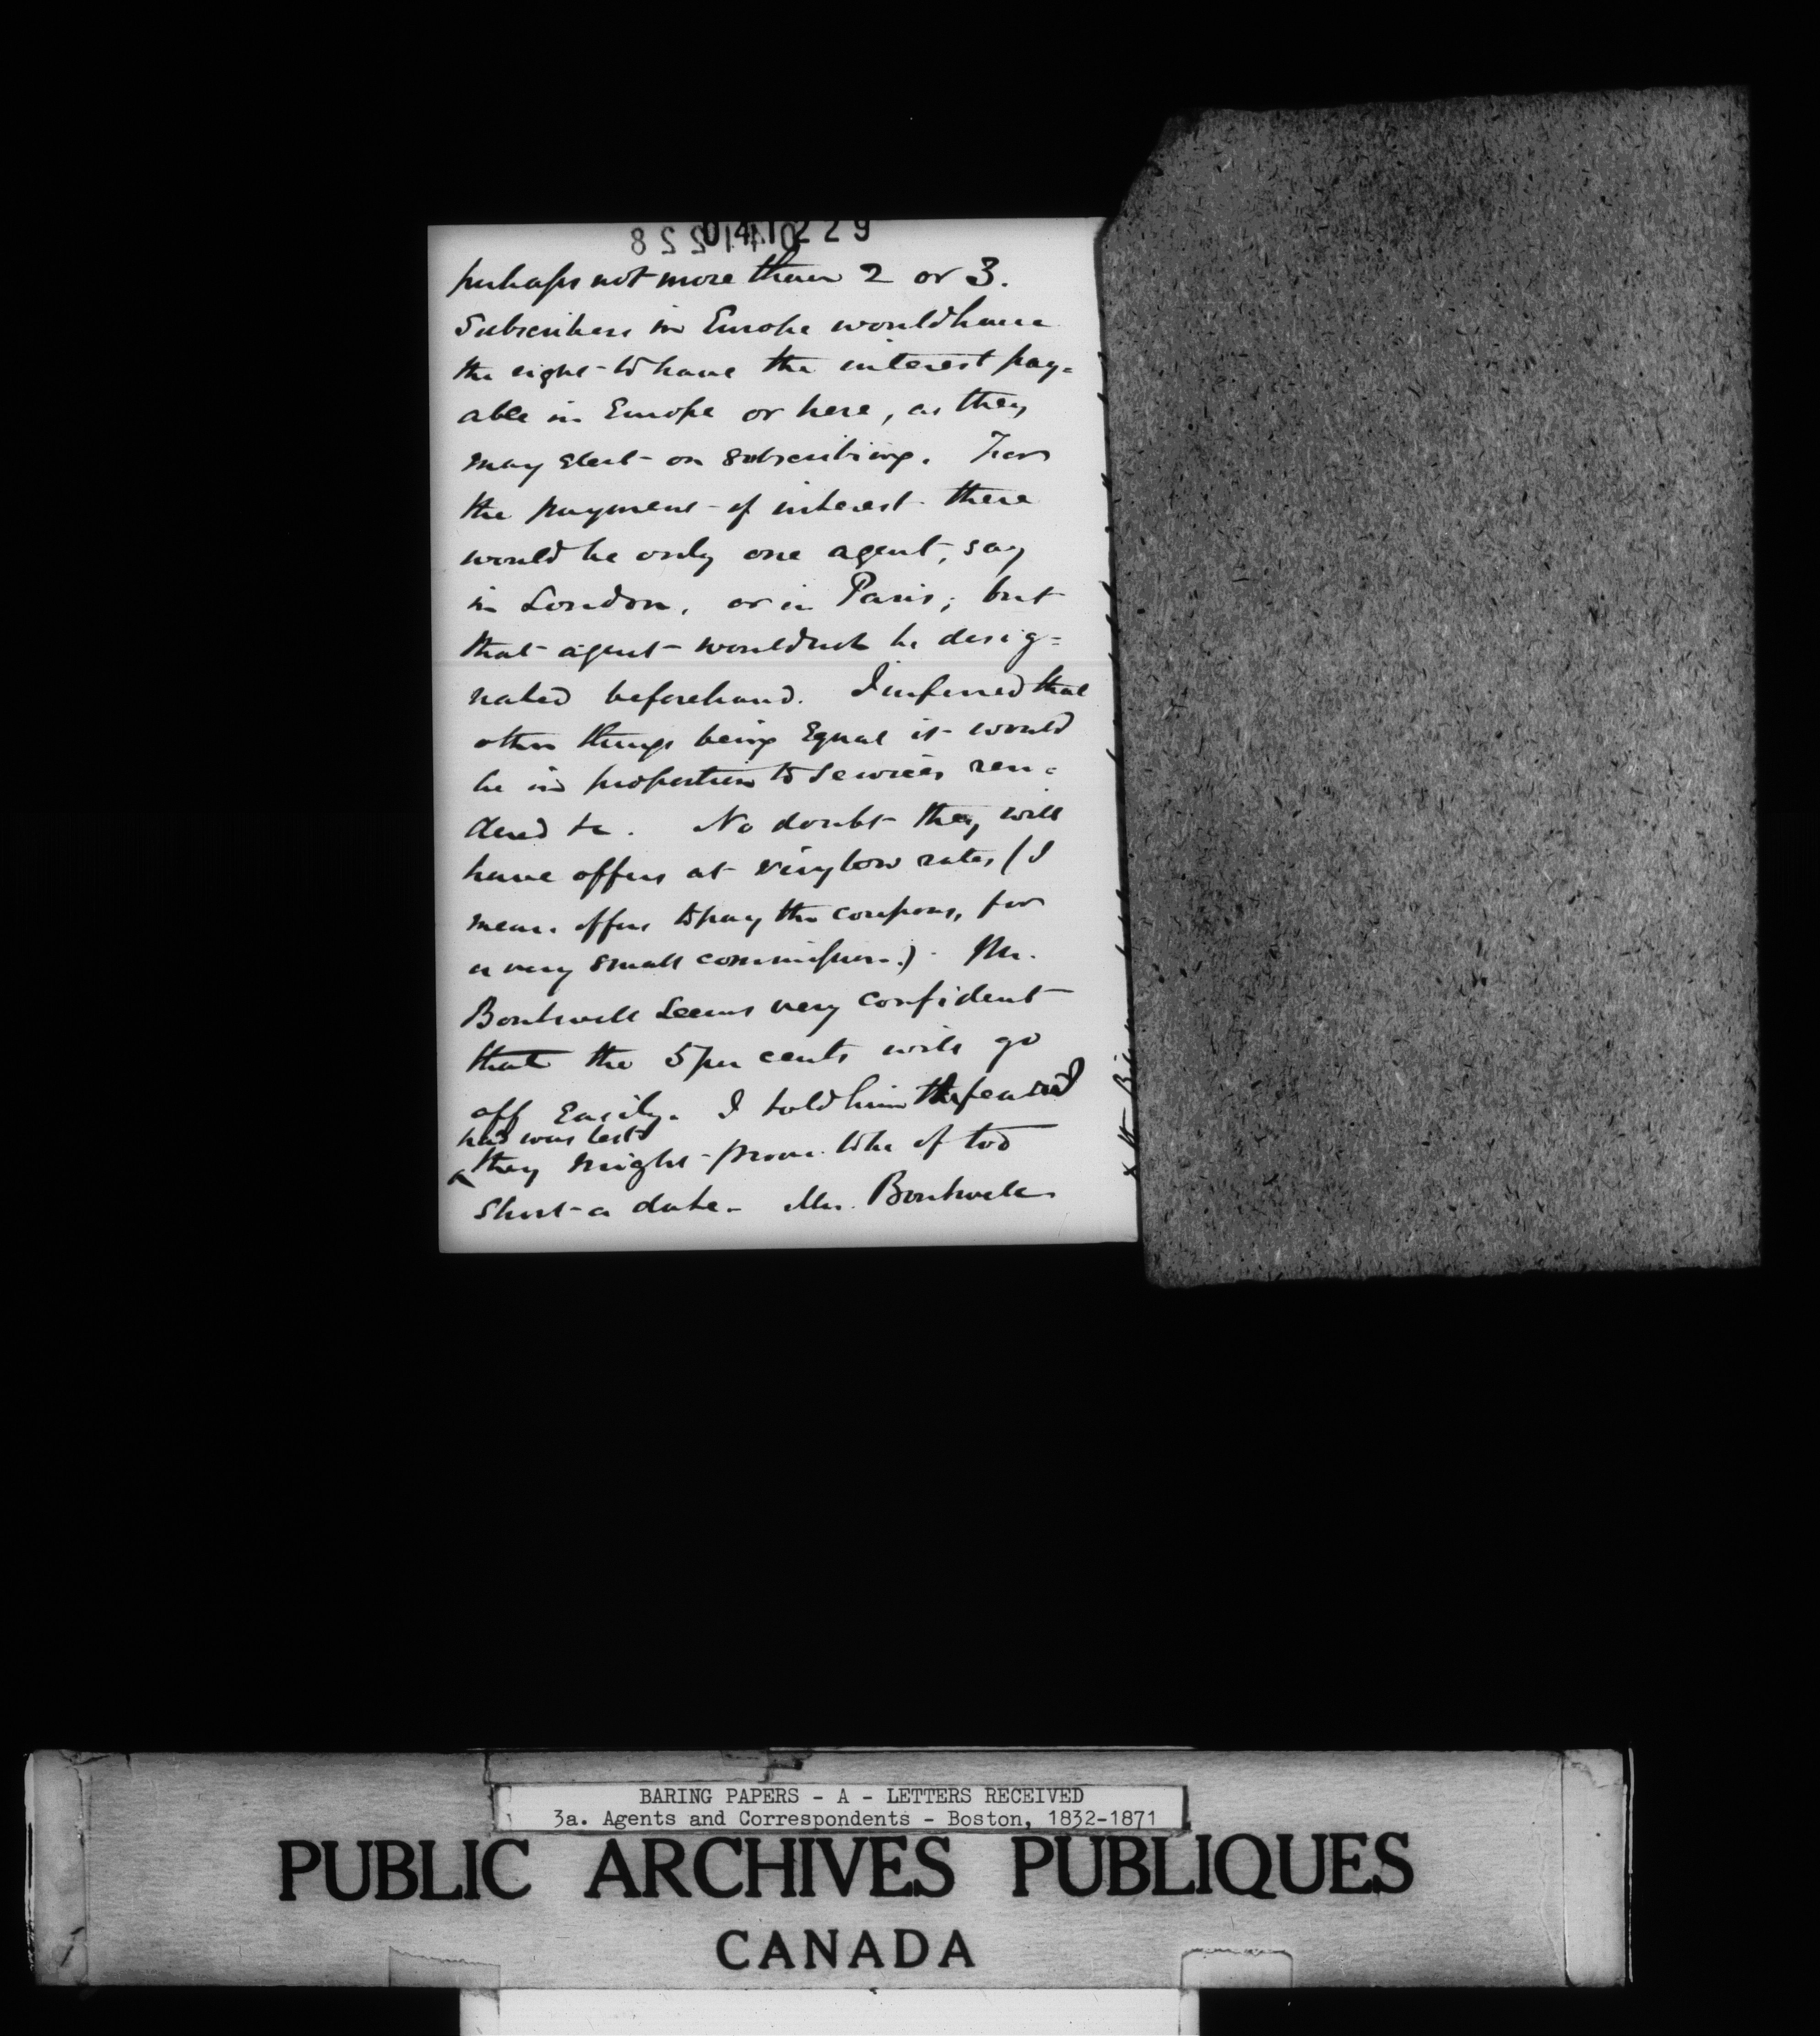 041229
perhaps not more than 2 or 3.
Subscribers in Europe would have
the right to have the interest pay=
able in Europe or here, as they
may elect on subscribing. For
the payment of interest there
would be only one agent, say
in London, or in Paris; but
that agent would not be desig=
nated beforehand. I inferred that
other things being Equal it would
be in proportion to services ren=
dered &c. No doubt they will
have offers at very low rates (I
mean offers to pay the coupons, for
a very small commission.) Mr.
Boutwell seems very confident
that the 5 per cents will go
off Easily. I told him the fear I
had was lest
they might prove to be of too
Short a date. Mr. Boutwell
BARING PAPERS - A - LETTERS RECEIVED
3a. Agents and Correspondents - Boston, 1832-1871
PUBLIC ARCHIVES PUBLIQUES
CANADA